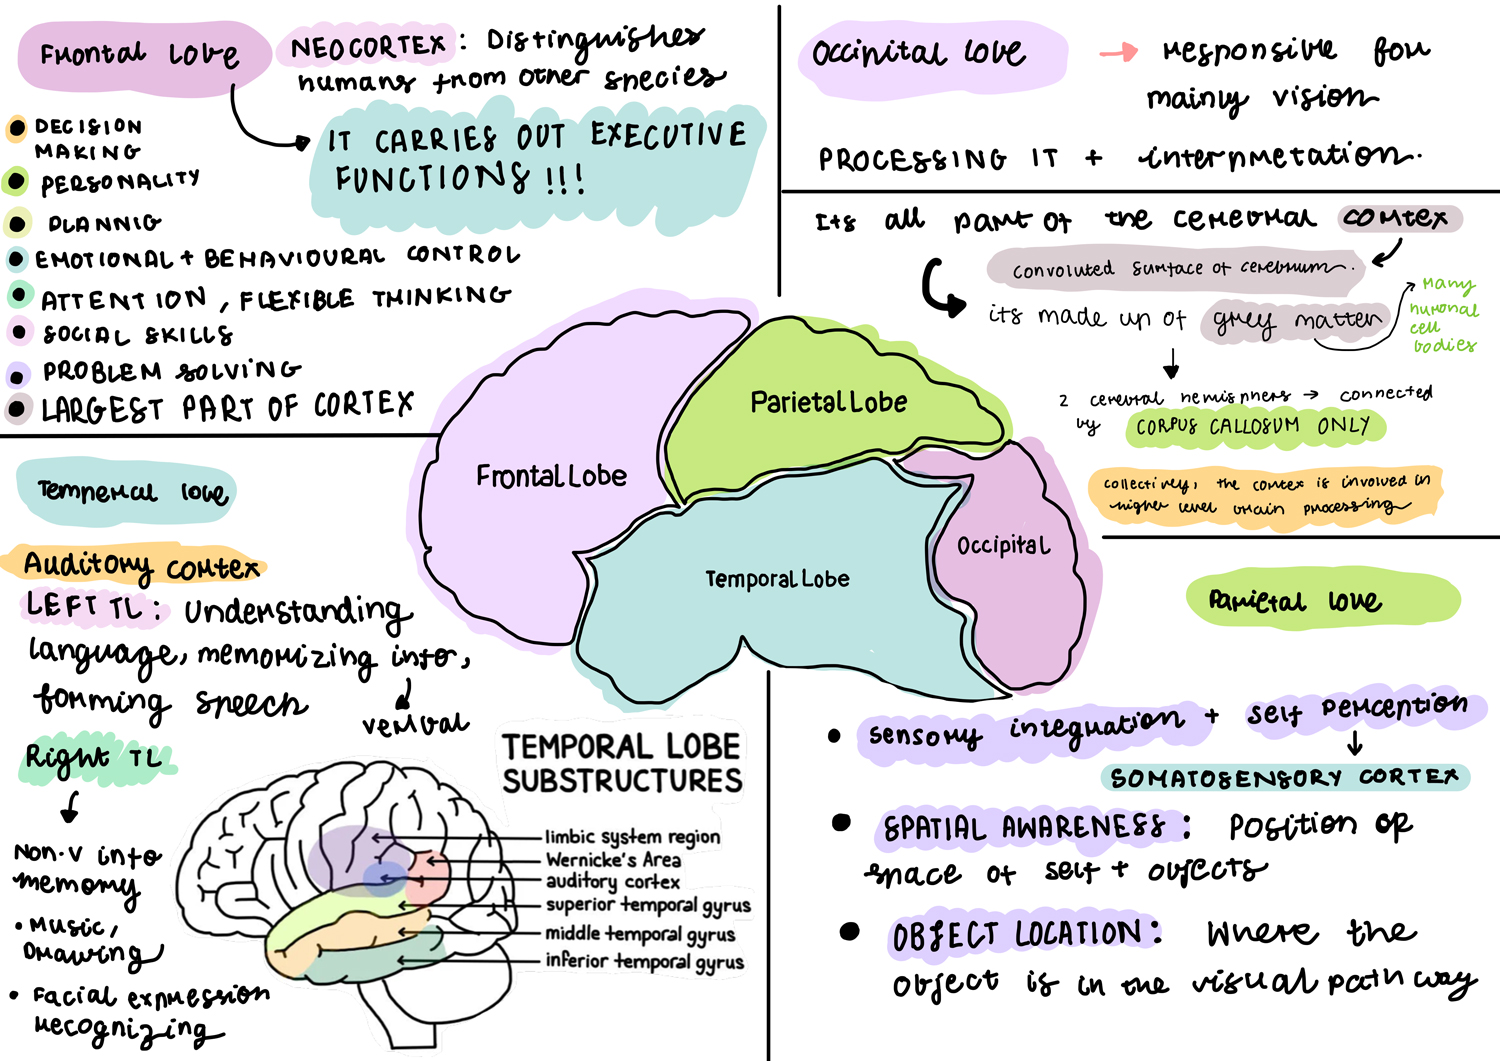 Frontal Lobe
NEOCORTEX: Distinguishes
humans from other species
IT CARRIES OUT EXECUTIVE
FUNCTIONS !!!
DECISION
MAKING
PERSONALITY
PLANNIG
EMOTIONAL + BEHAVIOURAL CONTROL
ATTENTION, FLEXIBLE THINKING
SOCIAL SKILLS
PROBLEM SOLVING
LARGEST PART OF CORTEX
Occipital Lobe → responsive for
mainly vision
PROCESSING IT + interpretation.
Its all part of the cerebral cortex
convoluted surface of cerebrum.
its made up of grey matter
Many
nuronal
cell
bodies
2 cerebral hemisphers → connected
by CORPUS CALLOSUM ONLY
collectively, the cortex is involved in
higher level brain processing
Frontal Lobe
Parietal Lobe
Temporal Lobe
Occipital
Temperal lobe
Auditory cortex
LEFT TL: Understanding
language, memorizing info,
forming speech
verbal
Right TL
Non-V info
memory
• Music,
Drawing
• Facial expression
recognizing
TEMPORAL LOBE
SUBSTRUCTURES
limbic system region
Wernicke's Area
auditory cortex
superior temporal gyrus
middle temporal gyrus
inferior temporal gyrus
Parietal lobe
• sensory integration + self perception
SOMATOSENSORY CORTEX
• SPATIAL AWARENESS: Position or
space of self + objects
• OBJECT LOCATION: Where the
object is in the visual pathway